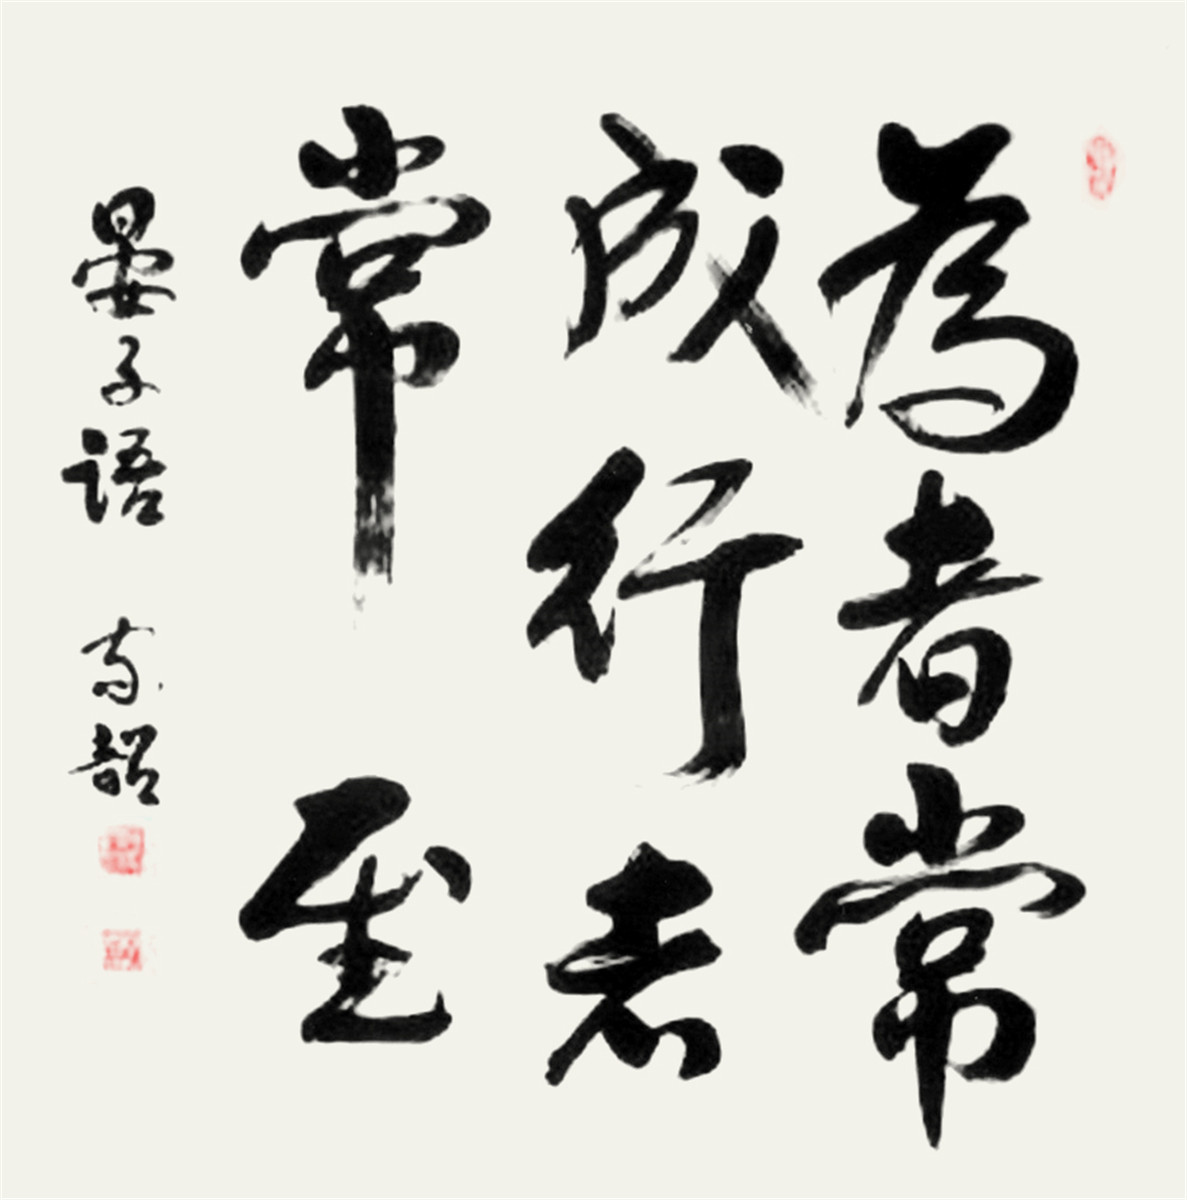 為者常
成行者
常至
晏子語 守韶